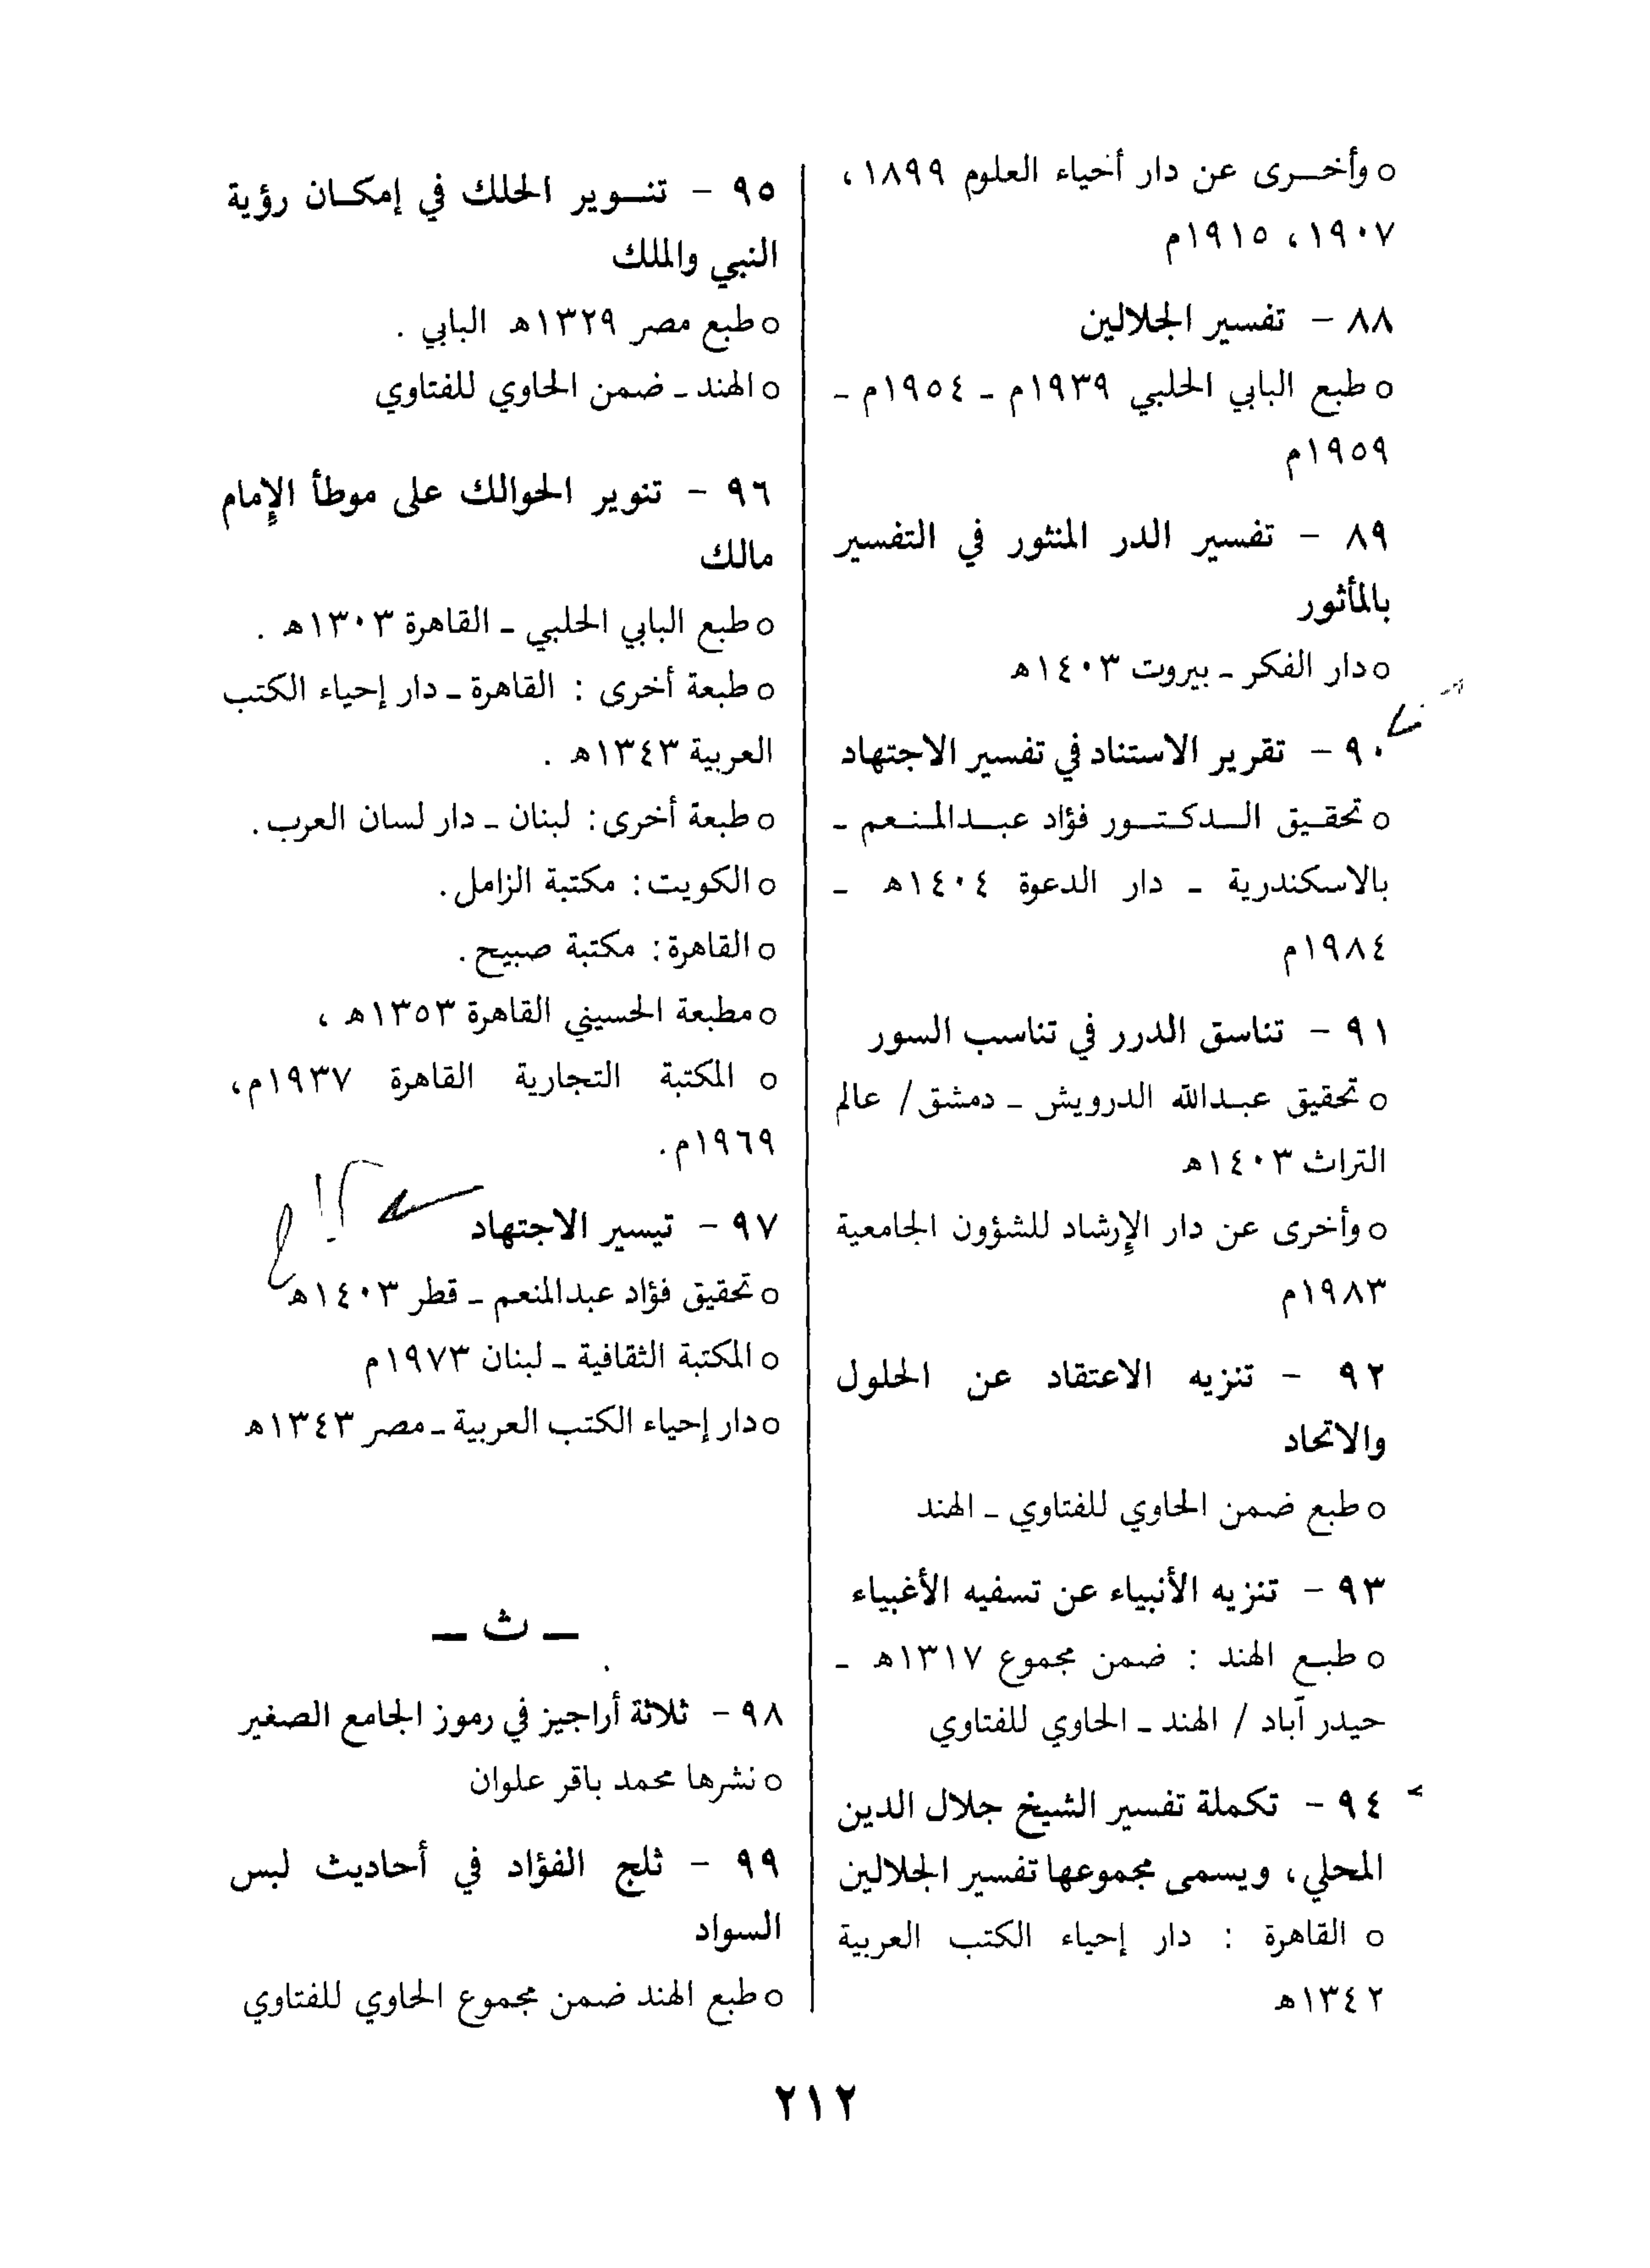 ○ وأخـــرى عن دار أحياء العلوم ١٨٩٩،
١٩٠٧، ١٩١٥م
٨٨ - تفسير الجلالين
○ طبع البابي الحلبي ١٩٣٩م ـ ١٩٥٤م ـ
١٩٥٩م
٨٩ - تفسير الدر المنثور في التفسير
بالمأثور
○ دار الفكر ـ بيروت ١٤٠٣هـ
٩٠ - تقرير الاستناد في تفسير الاجتهاد
○ تحقـيق الـــدكـتـــور فؤاد عبـــدالمـنـعم ـ
بالاسكندرية ـ دار الدعوة ١٤٠٤هـ ـ
١٩٨٤م
٩١ - تناسق الدرر في تناسب السور
○ تحقيق عبـدالله الدرويش ـ دمشق/ عالم
التراث ١٤٠٣هـ
○ وأخرى عن دار الإرشاد للشؤون الجامعية
١٩٨٣م
٩٢ - تنزيه الاعتقاد عن الحلول
والاتحاد
○ طبع ضمن الحاوي للفتاوي ـ الهند
٩٣ - تنزيه الأنبياء عن تسفيه الأغبياء
○ طبـع الهند : ضمن مجموع ١٣١٧هـ ـ
حيدر آباد / الهند ـ الحاوي للفتاوي
٩٤ - تكملة تفسير الشيخ جلال الدين
المحلي، ويسمى مجموعها تفسير الجلالين
○ القاهرة : دار إحياء الكتب العربية
١٣٤٢هـ
٩٥ - تنـــوير الحلك في إمكـان رؤية
النبي والملك
○ طبع مصر ١٣٢٩هـ البابي .
○ الهند ـ ضمن الحاوي للفتاوي
٩٦ - تنوير الحوالك على موطأ الإمام
مالك
○ طبع البابي الحلبي ـ القاهرة ١٣٠٣هـ .
○ طبعة أخرى : القاهرة ـ دار إحياء الكتب
العربية ١٣٤٣هـ .
○ طبعة أخرى: لبنان ـ دار لسان العرب.
○ الكويت: مكتبة الزامل.
○ القاهرة: مكتبة صبيح.
○ مطبعة الحسيني القاهرة ١٣٥٣هـ ،
○ المكتبة التجارية القاهرة ١٩٣٧م،
١٩٦٩م.
٩٧ - تيسير الاجتهاد
○ تحقيق فؤاد عبدالمنعم ـ قطر ١٤٠٣هـ
○ المكتبة الثقافية ـ لبنان ١٩٧٣م
○ دار إحياء الكتب العربية ـ مصر ١٣٤٣هـ
ـ ث ـ
٩٨ - ثلاثة أراجيز في رموز الجامع الصغير
○ نشرها محمد باقر علوان
٩٩ - ثلج الفؤاد في أحاديث لبس
السواد
○ طبع الهند ضمن مجموع الحاوي للفتاوي
٢١٢